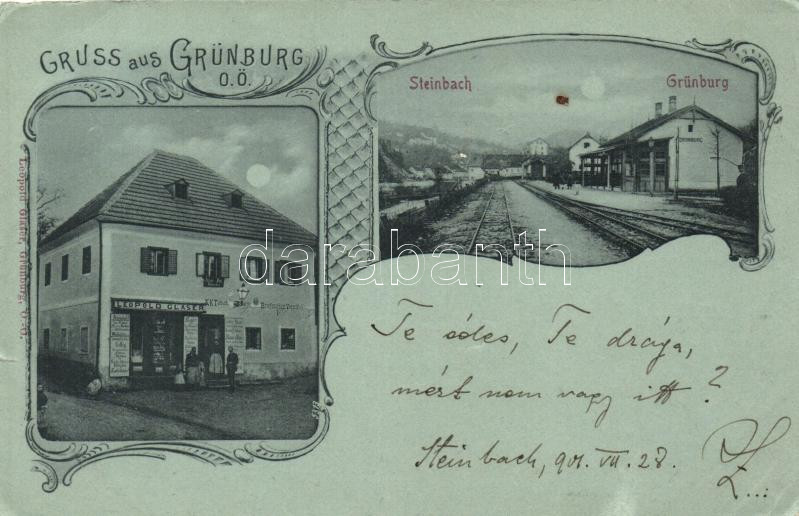 GRUSS aus GRÜNBURG
O.Ö.
Steinbach
Grünburg
Leopold Glaser, Grünburg, O.-Ö.
LEOPOLD GLASER
K.K.
GRÜNBURG
darabanth
Te édes, Te drága,
mért nem vagy itt?
Steinbach, 901. VII. 28.